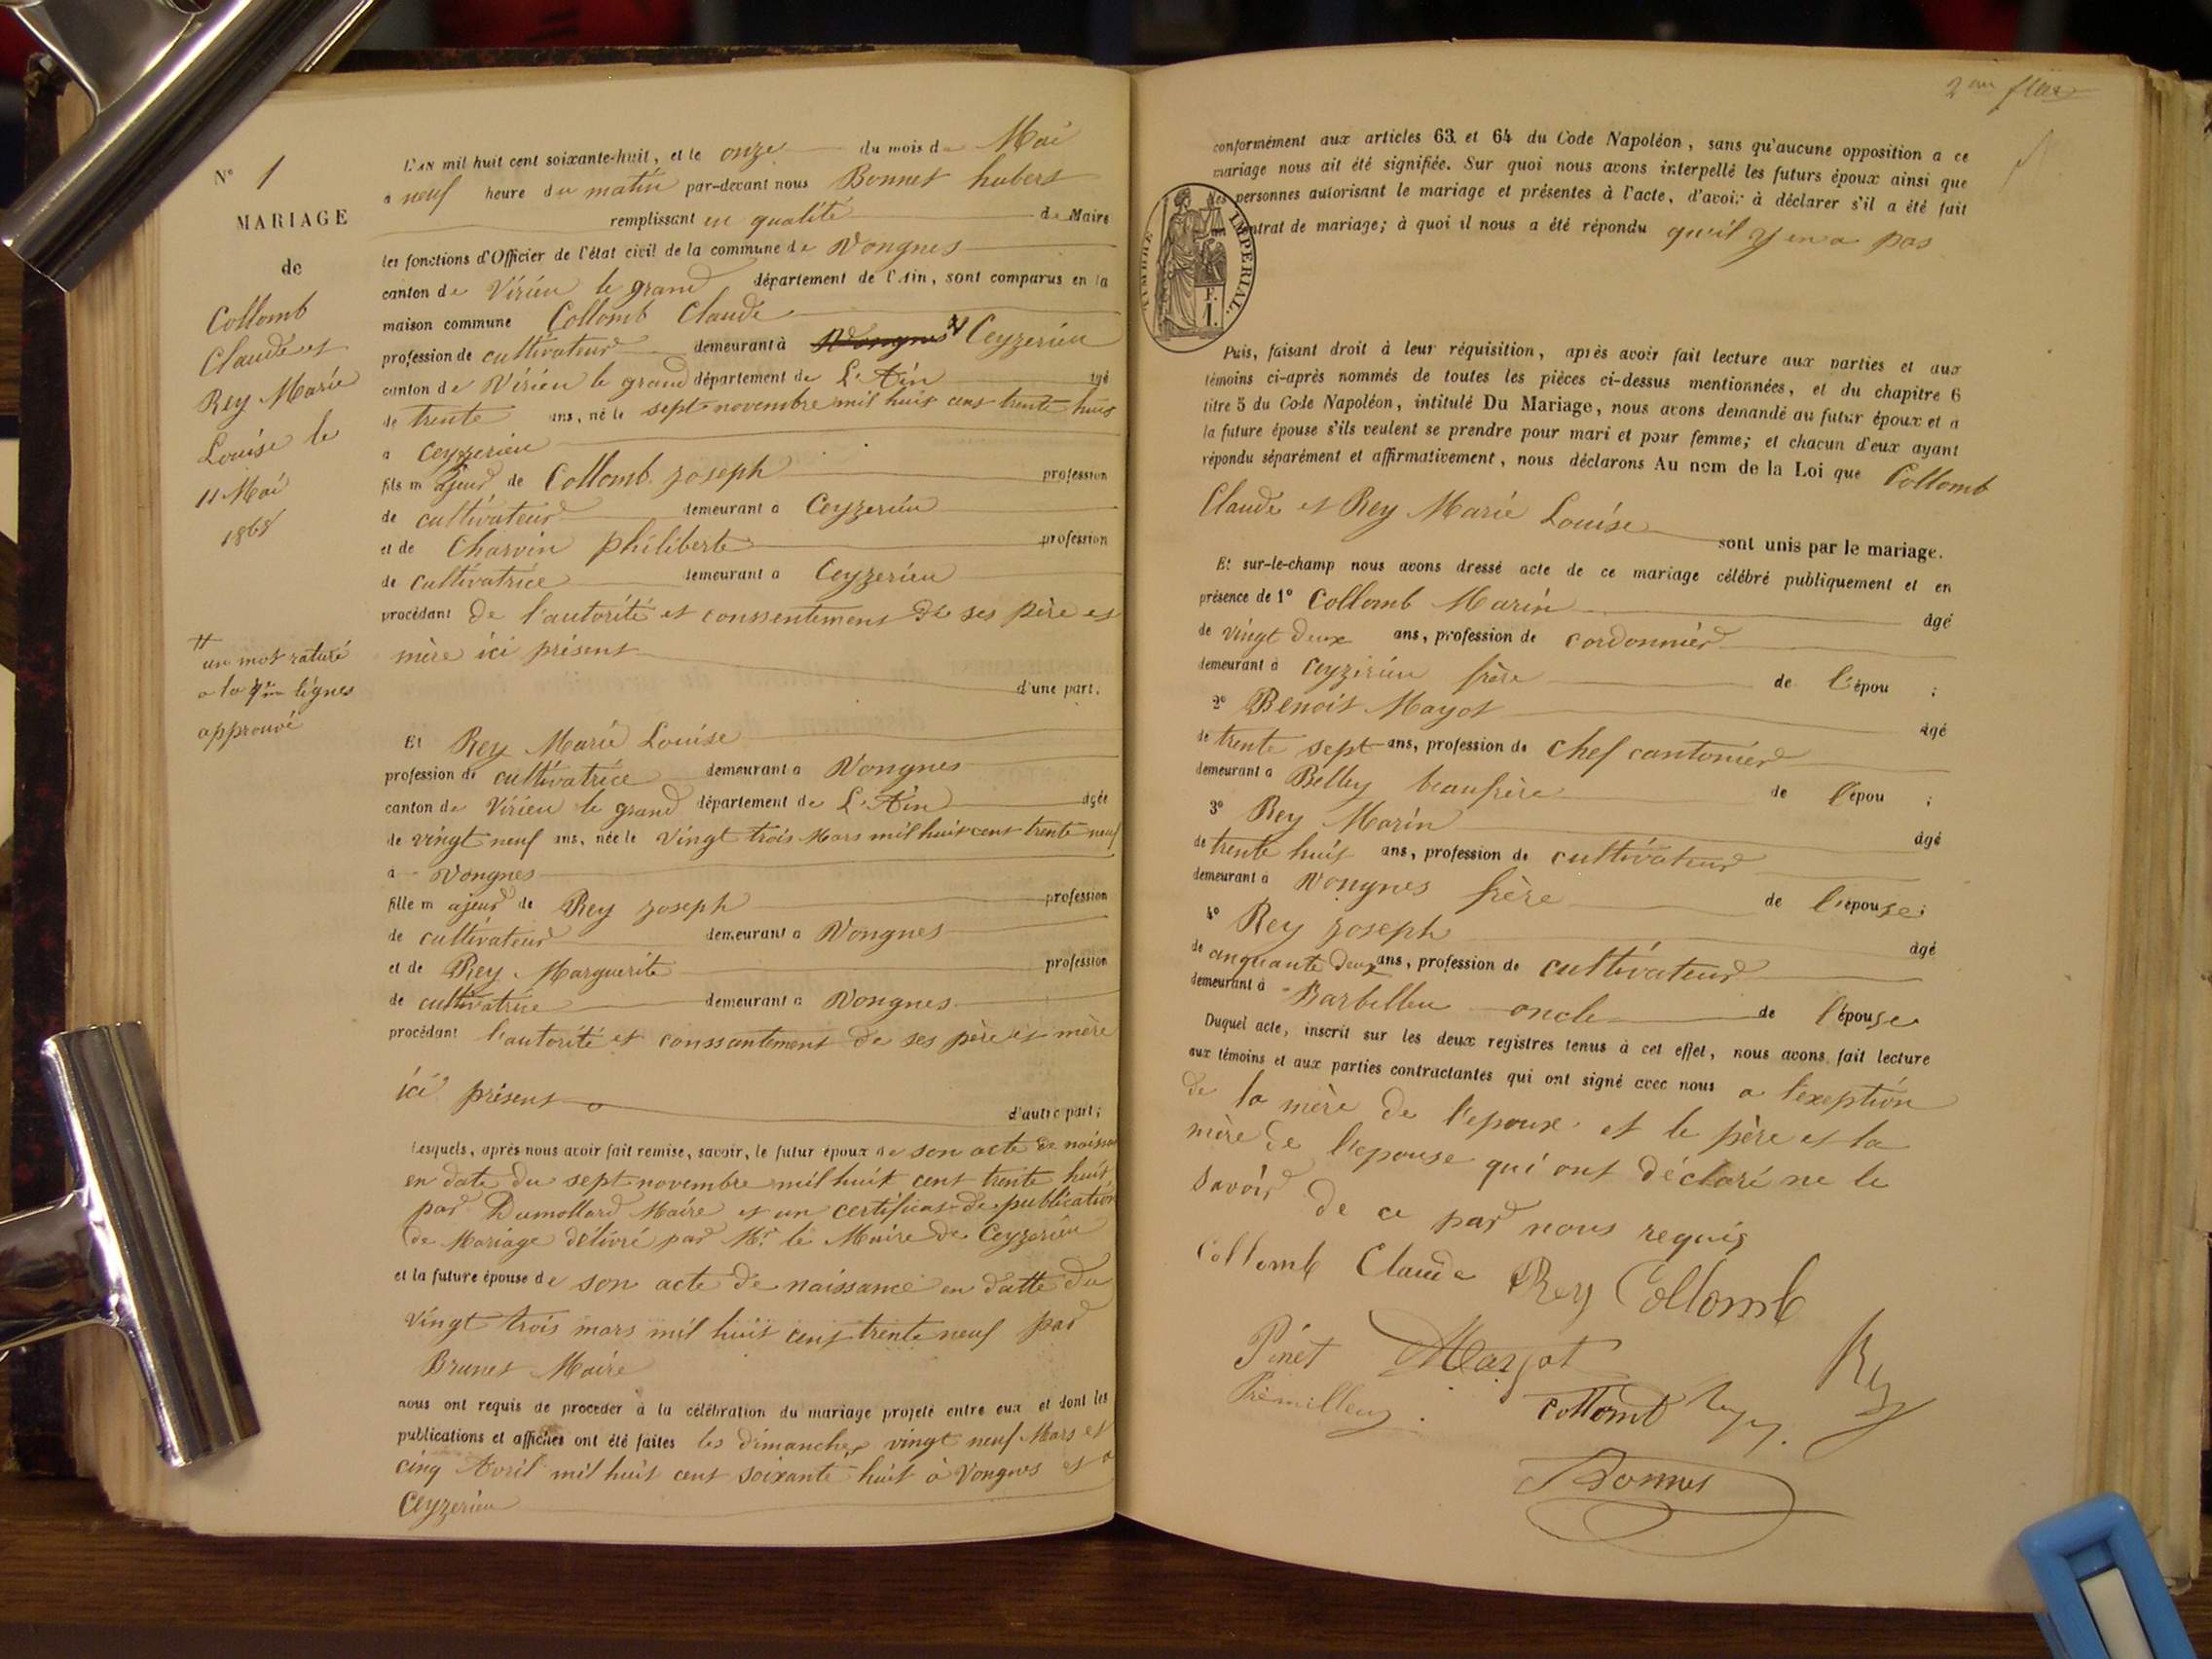 N° 1
MARIAGE
de
Collomb
Claude et
Rey Marie
Louise le
11 Mai
1868
# un mot raturé
a la 7me lignes
approuvé
L'AN mil huit cent soixante-huit, et le onze du mois de Mai
a neuf heure du matin par-devant nous Bonnet hubert
remplissant en qualité de Maire
les fonctions d'Officier de l'état civil de la commune de Vongnes
canton de Virieu le grand département de l'Ain, sont comparus en la
maison commune Collomb Claude
profession de cultivateur demeurant à Vongnes # Ceyzerieu
canton de Virieu le grand département de L'Ain agé
de trente ans, né le sept novembre mil huit cent trente huit
a Ceyzerieu
fils majeur de Collomb joseph profession
de cultivateur demeurant à Ceyzerieu
et de Charvin philiberte profession
de cultivatrice demeurant a Ceyzerieu
procédant de l'autorité et conssentement de ses père et
mère ici présent
d'une part.
Et Rey Marie Louise
profession de cultivatrice demeurant a Vongnes
canton de Virieu le grand département de L'Ain agée
de vingt neuf ans, née le vingt trois Mars mil huit cent trente neuf
a Vongnes
fille majeur de Rey joseph profession
de cultivateur demeurant a Vongnes
et de Rey Marguerite profession
de cultivatrice demeurant a Vongnes
procédant l'autorité et conssantement de ses père et mère
ici présent
d'autre part;
Lesquels, après nous avoir fait remise, savoir, le futur époux de son acte de naiss
en date du sept novembre mil huit cent trente huit
par Dumollard Maire et un certificat de publication
de Mariage délivré par Mr le Maire de Ceyzerieu
et la future épouse de son acte de naissance en datte du
vingt trois mars mil huit cent trente neuf par
Brunet Maire
nous ont requis de procéder à la célébration du mariage projeté entre eux et dont les
publications et affiches ont été faites les dimanches vingt neuf Mars et
cinq Avril mil huit cent soixante huit à Vongnes et a
Ceyzerieu
2me
conformément aux articles 63 et 64 du Code Napoléon, sans qu'aucune opposition a ce
mariage nous ait été signifiée. Sur quoi nous avons interpellé les futurs époux ainsi que
les personnes autorisant le mariage et présentes à l'acte, d'avoir à déclarer s'il a été fait
un contrat de mariage; à quoi il nous a été répondu qu'il y en a pas
TIMBRE IMPERIAL.
F.
1.
Puis, faisant droit à leur réquisition, après avoir fait lecture aux parties et aux
témoins ci-après nommés de toutes les pièces ci-dessus mentionnées, et du chapitre 6
titre 5 du Code Napoléon, intitulé Du Mariage, nous avons demandé au futur époux et a
la future épouse s'ils veulent se prendre pour mari et pour femme; et chacun d'eux ayant
répondu séparément et affirmativement, nous déclarons Au nom de la Loi que Collomb
Claude et Rey Marie Louise
sont unis par le mariage.
Et sur-le-champ nous avons dressé acte de ce mariage célébré publiquement et en
présence de 1° Collomb Marin
âgé
de vingt deux ans, profession de cordonnier
demeurant à Ceyzerieu frère de l'épou ;
2° Benoit Mayot
âgé
de trente sept ans, profession de chef cantonier
demeurant a Belley beaufrère de l'épou ;
3° Rey Marin
âgé
de trente huit ans, profession de cultivateur
demeurant a Vongnes frère de l'épouse;
4° Rey joseph
âgé
de cinquante deux ans, profession de cultivateur
demeurant à Barbilleu oncle de l'épouse
Duquel acte, inscrit sur les deux registres tenus à cet effet, nous avons fait lecture
aux témoins et aux parties contractantes qui ont signé avec nous a l'exeption
de la mère de l'epoux et le père et la
mère de l'epouse qui ont déclaré ne le
savoir de ce par nous requis
Collomb Claude Rey Collomb
Pinet Marjot Rey
Prémilleux Collomb Rey
Bonnet